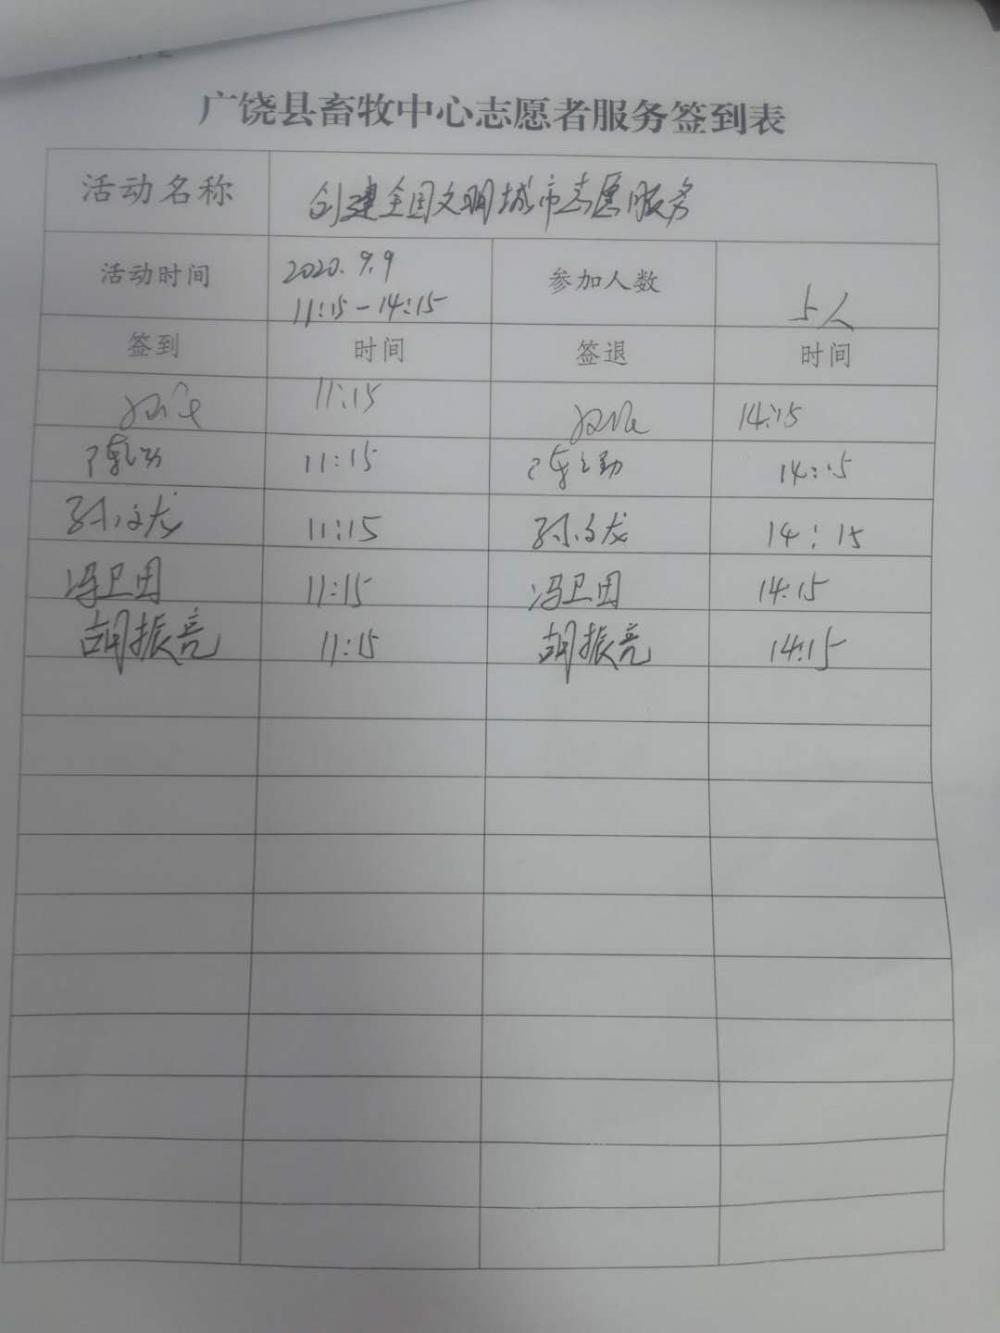 广饶县畜牧中心志愿者服务签到表
活动名称 创建全国文明城市志愿服务
活动时间 2020.9.9 11:15-14:15 参加人数 5人
签到 时间 签退 时间
11:15 14:15
11:15 14:15
孙文龙 11:15 孙文龙 14:15
冯卫田 11:15 冯卫田 14:15
胡振亮 11:15 胡振亮 14:15